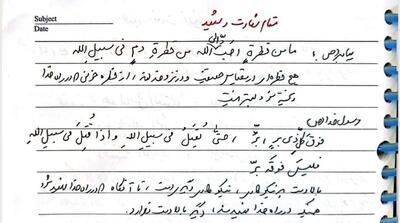 Subject
Date
مقام زیارت و شهید
پیامبر ص: ما من قطرةٍ احبّ الی اللّه من قطرةِ دمٍ فی سبیل اللّه
هیچ قطره‌ای در مقیاس حقیقت و در نزد خدا، از قطره خونی که در راه خدا
ریخته شود بهتر نیست
رسول خدا ص
فوق کلّ ذی برٍّ، برٌّ، حتّی یُقتَلُ فی سبیل اللّهِ و اذا قُتِلَ فی سبیل اللّهِ
فلیس فوقه برٌّ
بالادست هر نیکی، نیکی دیگری است، تا آنگاه که در راه خدا شهید شود
همینکه در راه خدا شهید شد، دیگر بالادست ندارد.